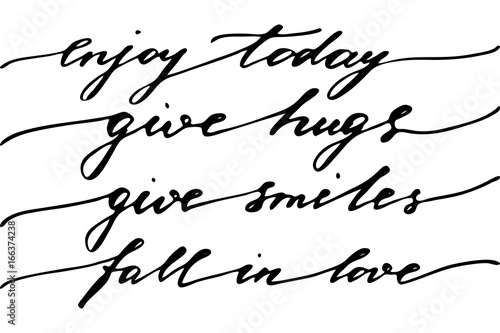 enjoy today
give hugs
give smiles
fall in love
166374238